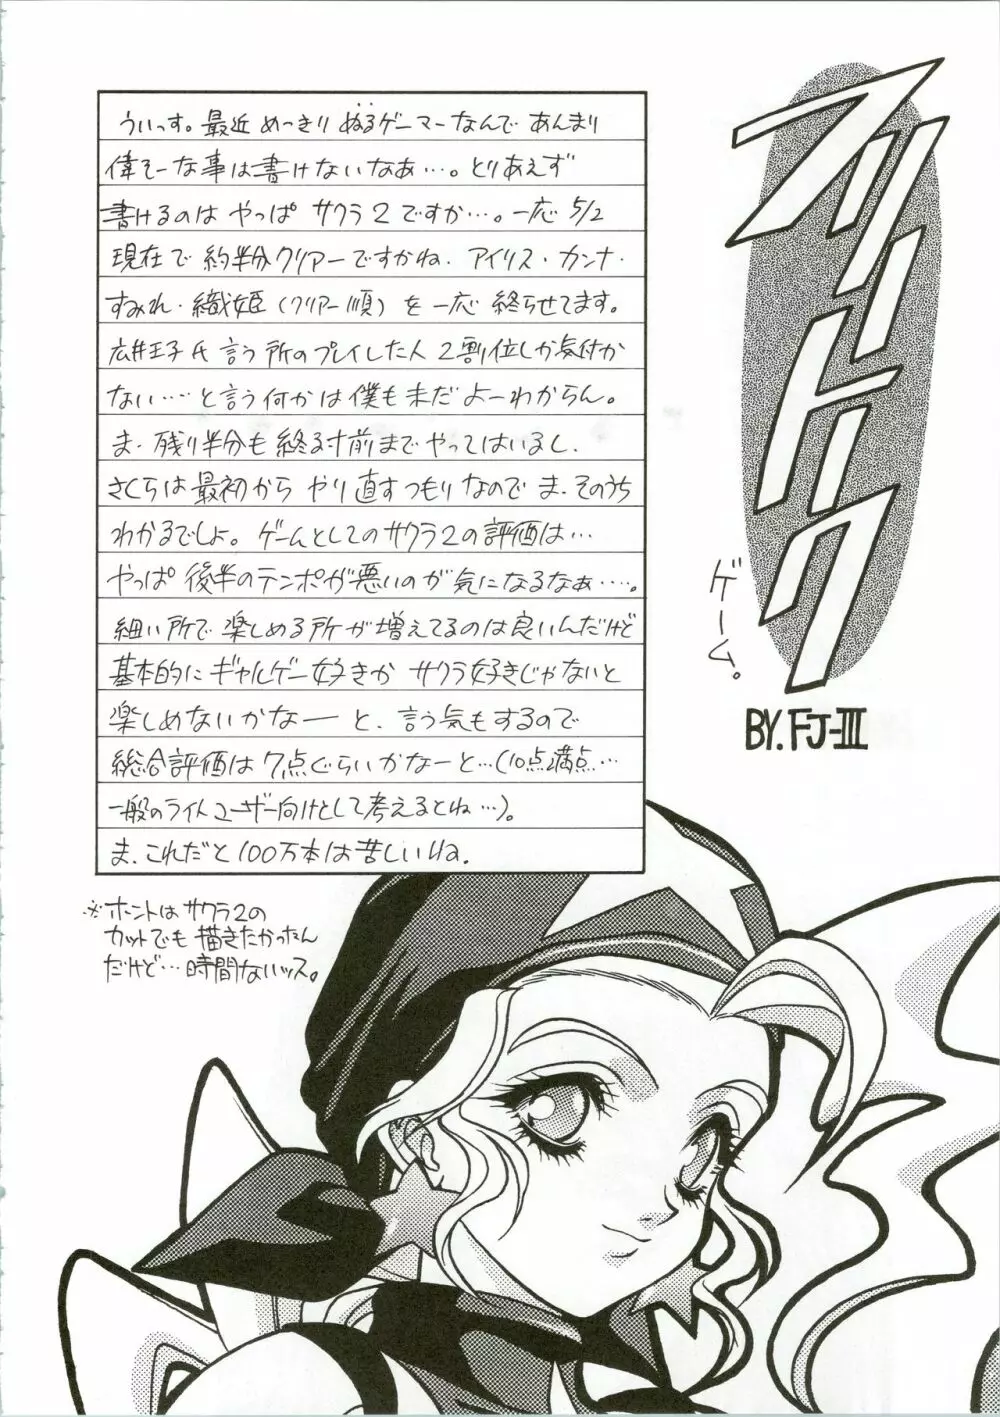 フリートーク
ゲーム。
BY.FJ-III
ういっす。最近 めっきり ぬるゲーマーなんで あんまり
偉そーな事は書けないなあ…。とりあえず
書けるのは やっぱ サクラ2ですか…。一応 5/2
現在で 約半分クリアーですかね. アイリス・カンナ・
すみれ・織姫(クリアー順)を 一応 終らせてます。
広井王子氏 言う所のプレイした人 2割位しか気付か
ない…と言う何かは僕も未だ よーわからん。
ま. 残り半分も 終る寸前まで やってはいるし.
さくらは 最初から やり直すつもりなので ま. そのうち
わかるでしょ。ゲームとしてのサクラ2の評価は…
やっぱ 後半のテンポが悪いのが 気になるなぁ…‥。
細い所で 楽しめる所が増えてるのは良いんだけど
基本的に ギャルゲー好きか サクラ好きじゃないと
楽しめないかなー と、言う気もするので
総合評価は 7点ぐらいかなーと…(10点満点…
一般のライトユーザー向けとして考えるとね…)。
ま. これだと 100万本は苦しいね.
※ホントは サクラ2の
カットでも 描きたかったん
だけど…時間ないッス。